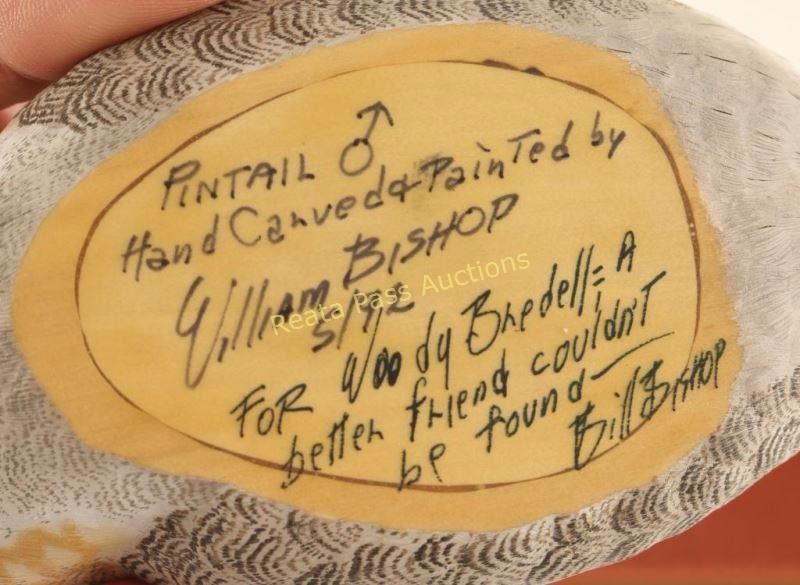 PINTAIL ♂
Hand Carved & Painted by
William BISHOP
5/92
Reata Pass Auctions
FOR Woody Bredell; A
better friend couldn't
be found—
Bill BISHOP